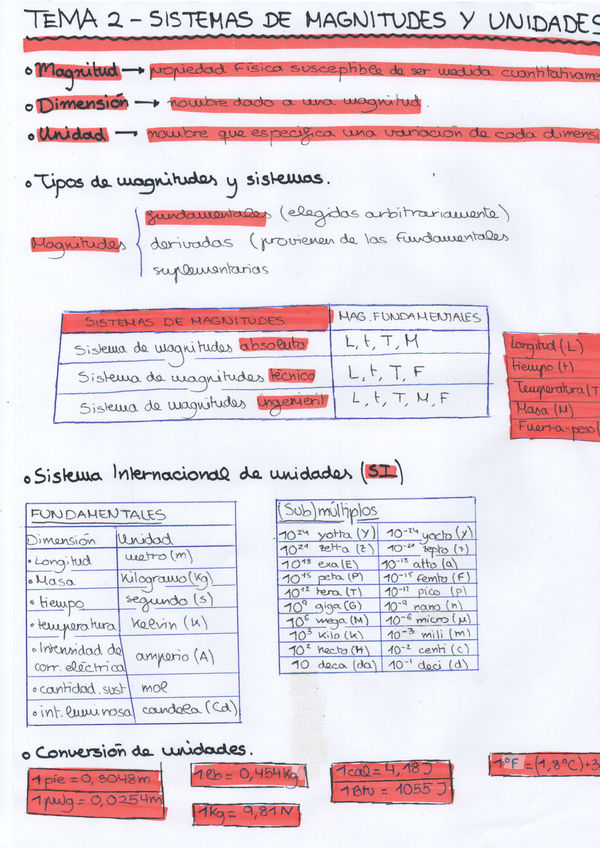 TEMA 2 - SISTEMAS DE MAGNITUDES Y UNIDADES
• Magnitud → propiedad física susceptible de ser medida cuantitativame
• Dimensión → nombre dado a una magnitud.
• Unidad → nombre que especifica una variación de cada dimensi
• Tipos de magnitudes y sistemas.
Magnitudes
fundamentales (elegidas arbitrariamente)
derivadas (provienen de las fundamentales
suplementarias
SISTEMAS DE MAGNITUDES MAG. FUNDAMENTALES
Sistema de magnitudes absoluto L, t, T, M
Sistema de magnitudes técnico L, t, T, F
Sistema de magnitudes ingenieril L, t, T, M, F
Longitud (L)
tiempo (t)
Temperatura (T
Masa (M)
Fuerza-peso (
• Sistema Internacional de unidades (SI)
FUNDAMENTALES
Dimensión Unidad
• Longitud metro (m)
• Masa Kilogramo (Kg)
• tiempo segundo (s)
• temperatura Kelvin (K)
• Intensidad de corr. eléctrica amperio (A)
• cantidad. sust mol
• int. luminosa candela (Cd)
(Sub)múltiplos
10²⁴ yotta (Y) 10⁻²⁴ yocto (y)
10²¹ zetta (Z) 10⁻²¹ zepto (z)
10¹⁸ exa (E) 10⁻¹⁸ atto (a)
10¹⁵ peta (P) 10⁻¹⁵ femto (F)
10¹² tera (T) 10⁻¹² pico (p)
10⁹ giga (G) 10⁻⁹ nano (n)
10⁶ mega (M) 10⁻⁶ micro (μ)
10³ Kilo (K) 10⁻³ mili (m)
10² hecto (H) 10⁻² centi (c)
10 deca (da) 10⁻¹ deci (d)
• Conversión de unidades.
1 pie = 0,3048m
1 pulg = 0,0254m
1 lb = 0,454Kg
1 Kg = 9,81 N
1 cal = 4,18 J
1 Btu = 1055 J
1°F = (1,8°C)+3